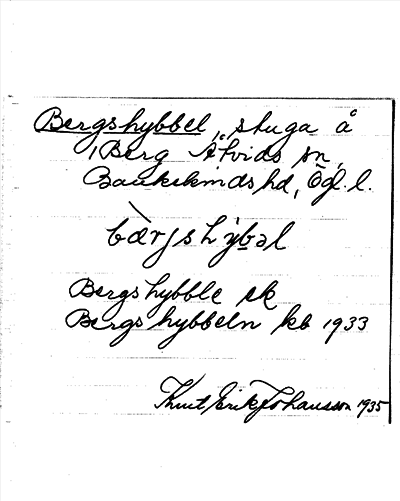 Bergshybbel, stuga å
Berg Åtvids sn,
Bankekinds hd, Ögl. l.
bæ̀rjshỳbəl
Bergshybble ek
Bergshybbeln kb 1933
Knut Erik Johansson 1935